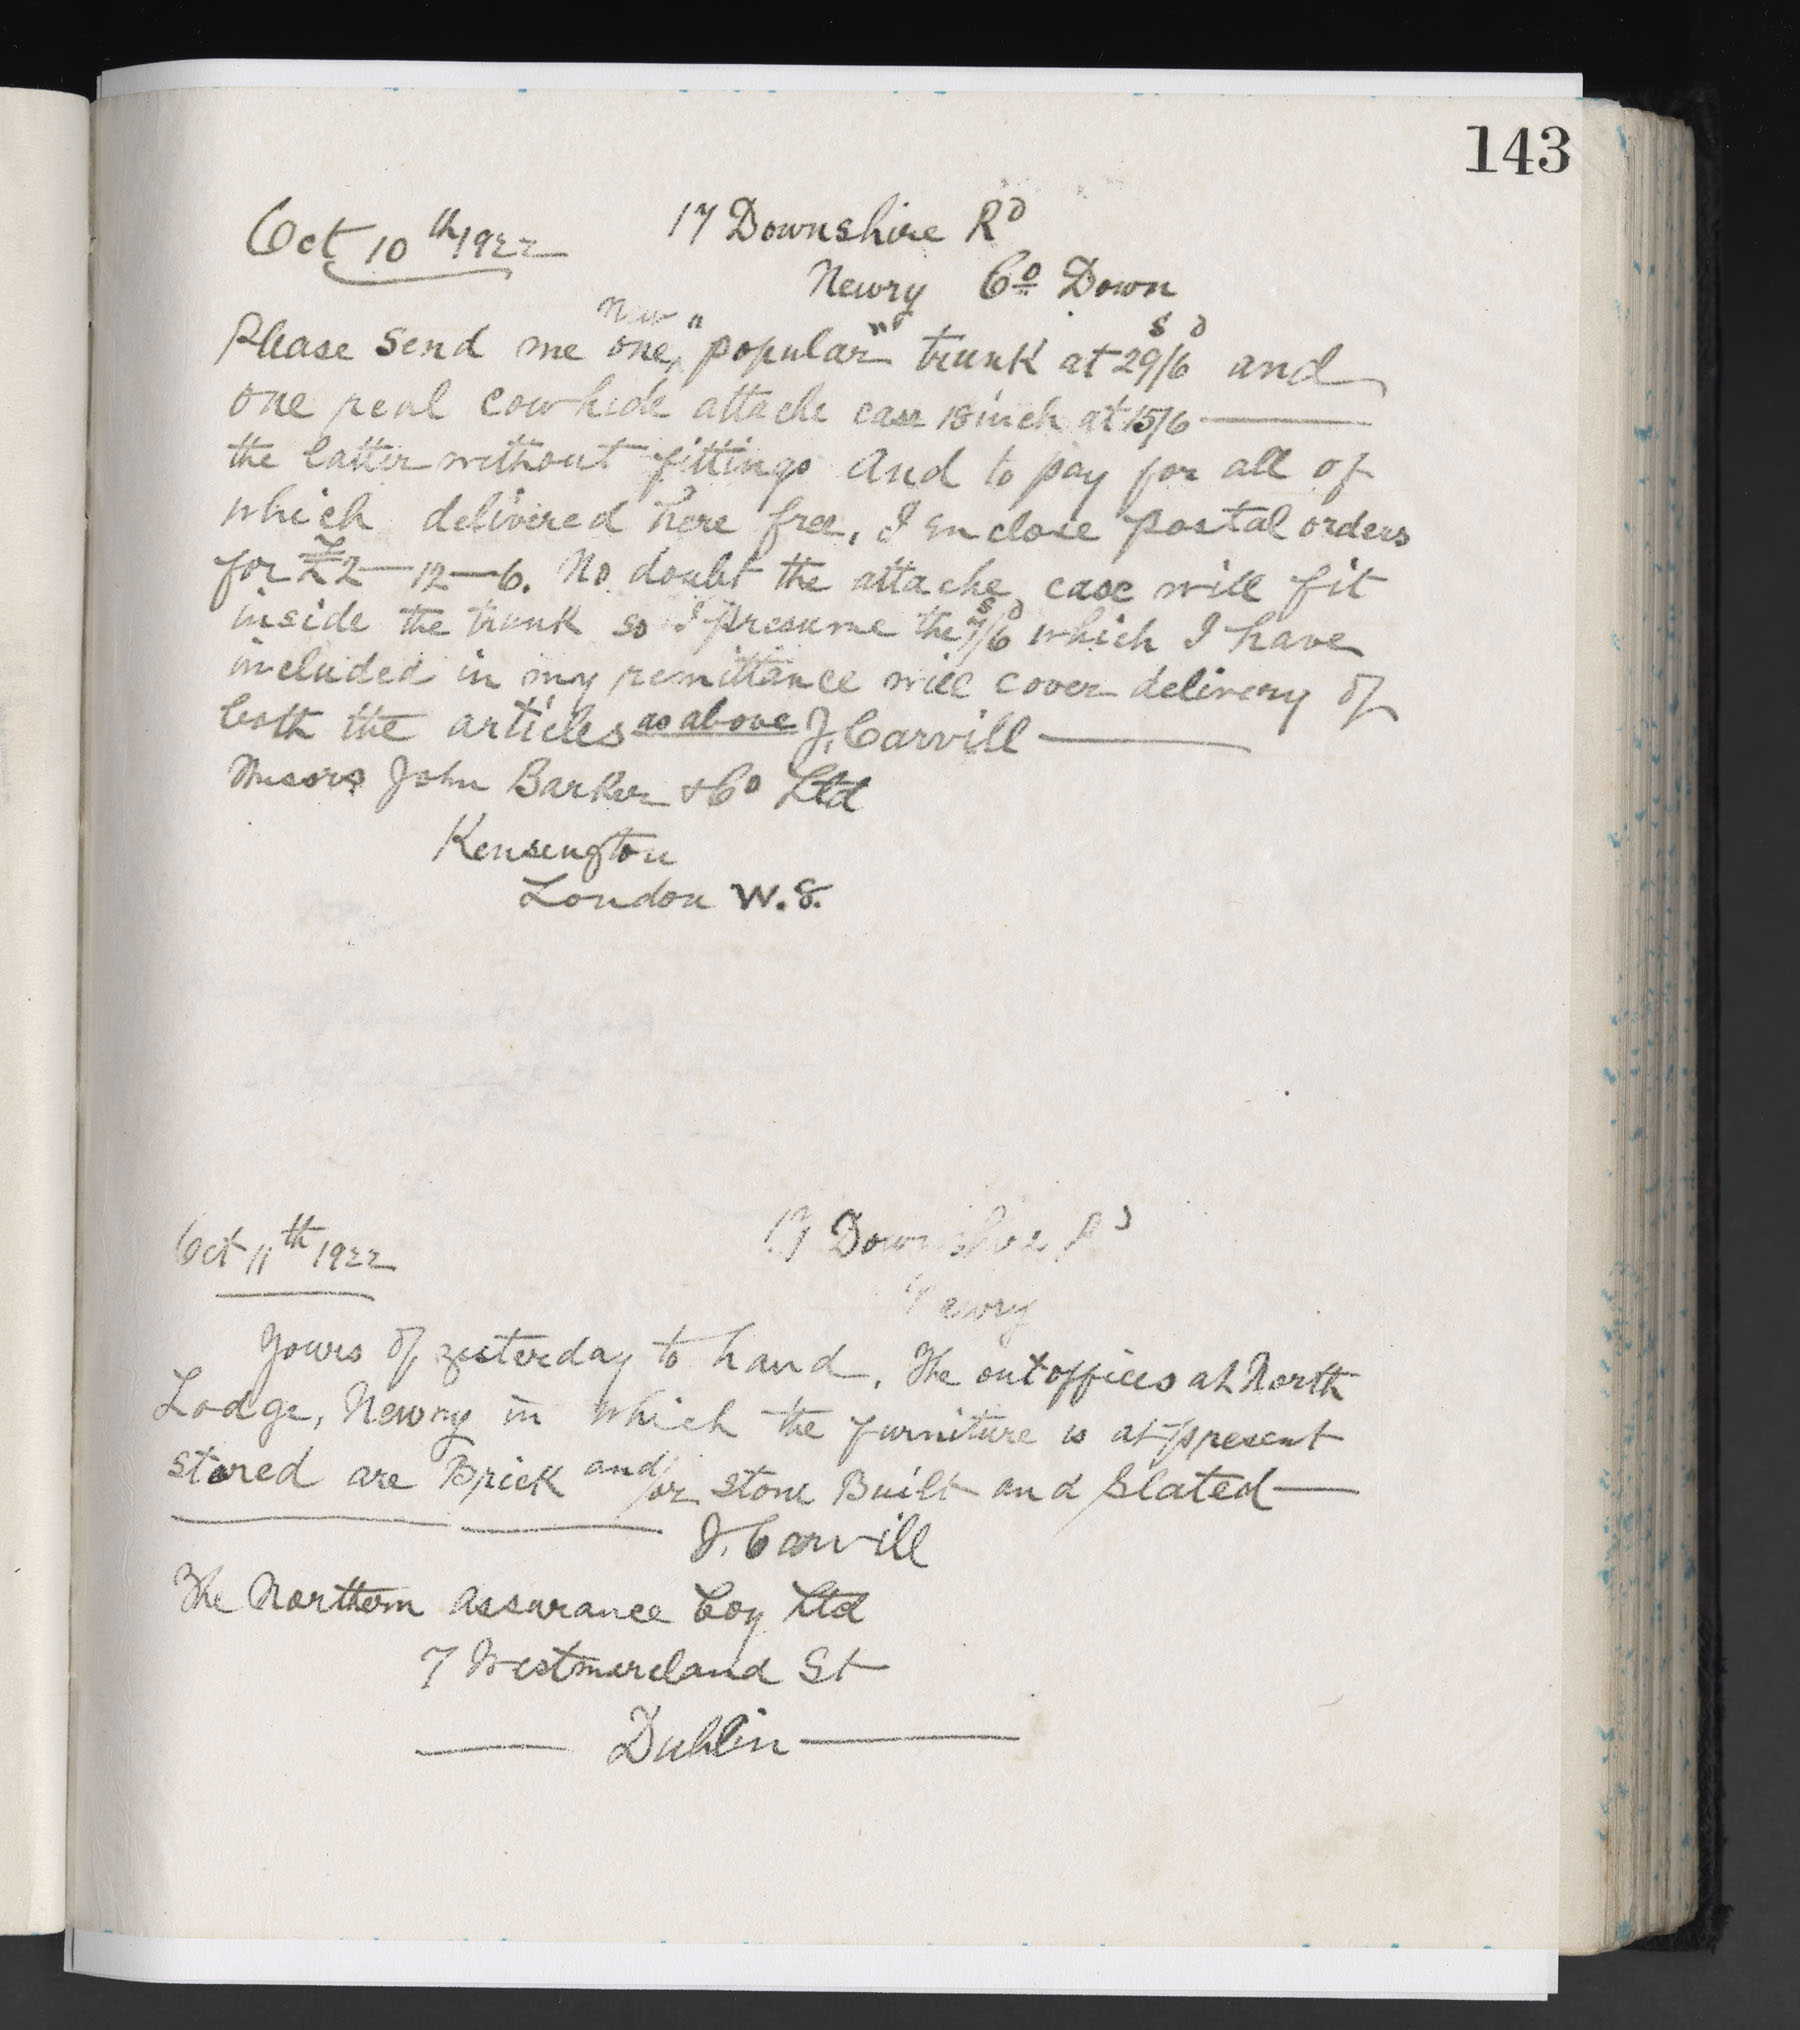 143
Oct 10th 1922 17 Downshire Rd
Newry Co Down
Please send me one new "popular" trunk at 29s/6d and
one real cowhide attache case 18 inch at 15/6
the latter without fittings and to pay for all of
which delivered here free, I enclose postal orders
for £2-12-6. No doubt the attache case will fit
inside the trunk so I presume the 7s/6d which I have
included in my remittance will cover delivery of
both the articles as above J. Carvill
Messrs John Barker & Co Ltd
Kensington
London W.8.
Oct 11th 1922 17 Downshire Rd
Newry
Yours of yesterday to hand. The outoffices at North
Lodge, Newry in which the furniture is at present
stored are Brick and/or stone Built and slated
J. Carvill
The Northern Assurance Coy Ltd
7 Westmoreland St
Dublin